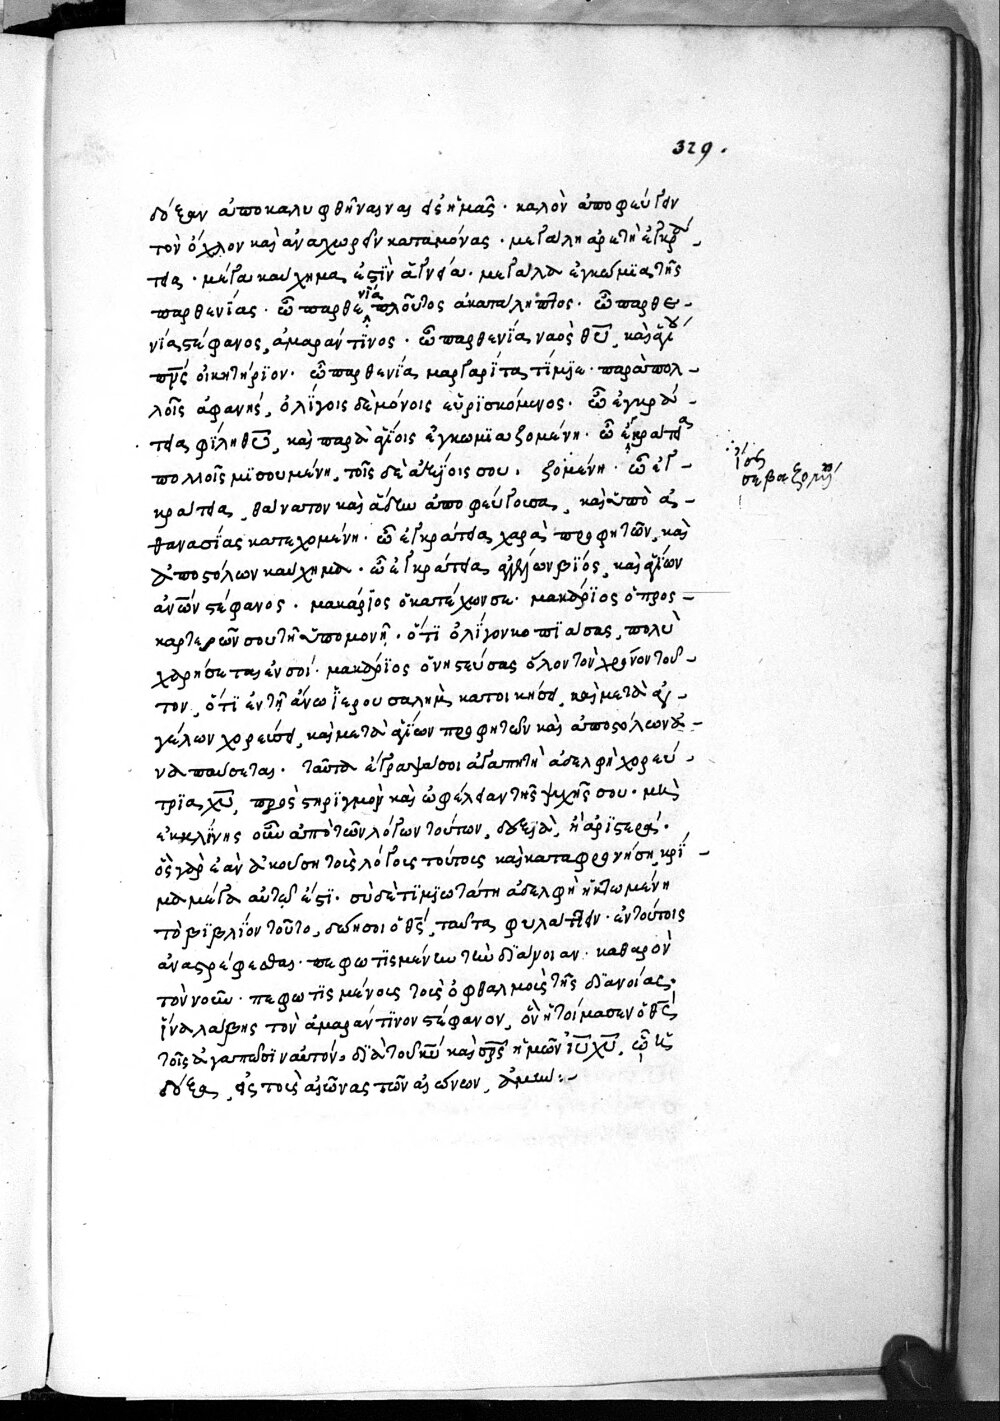 329.
δόξαν ἀποκαλυφθῆναι εἰς ἡμᾶς. καλὸν ἀποφεύγειν
τὸν ὄχλον καὶ ἀναχωρεῖν καταμόνας. μεγάλη ἀρετὴ ἐγκρά-
τεια. μέγα καύχημα ἐστὶν ἁγνεία. μεγάλα ἐγκώμϊα τῆς
παρθενίας. ὦ παρθενία πλοῦτος ἀκατάληπτος. ὦ παρθε-
νία στέφανος ἀμαράντϊνος. ὦ παρθενΐα ναὸς θῦ, καὶ ἁγίου
πνς οἰκητήρϊον. ὦ παρθενΐα μαργαρΐτα τίμϊε. παρὰ πολ-
λοῖς ἀφανὴς, ὀλΐγοις δὲ μόνοις εὑρϊσκόμενος. ὦ ἐγκρά-
τεια φΐλη θῦ, καὶ παρὰ ἁγΐοις ἐγκωμϊαζομένη. ὦ ἐγκράτεια
πολλοῖς μϊσουμένη, τοῖς δὲ ἀξΐοις σου. ζομένη. ὦ ἐγ-
ἴσως
σεβαζομένη
κράτεια, θάνατον καὶ ἅδην ἀποφεύγουσα, καὶ ὑπὸ ἀ-
θανασΐας κατεχομένη. ὦ ἐγκράτεια χαρὰ προφητῶν, καὶ
ἀποστόλων καύχημα. ὦ ἐγκράτεια ἀγγέλων βΐος, καὶ ἁγΐων
ἀνῶν στέφανος. μακάρϊος ὁ κατέχων σε. μακάρϊος ὁ προς-
καρτερῶν σου τῇ ὑπομονῇ. ὅτϊ ὀλΐγον κοπϊάσας, πολὺ
χαρήσεται ἐν σοί. μακάρϊος ὁ νηστεύσας ὅλον τὸν χρόνον τοῦ-
τον, ὅτϊ ἐν τῇ ἄνω ἱερουσαλὴμ κατοικήσει, καὶ μετὰ ἀγ-
γέλων χορεύσει, καὶ μετὰ ἁγΐων προφητῶν καὶ ἀποστόλων ἀ-
ναπαύσεται. ταῦτα ἔγραψά σοι ἀγαπητὴ ἀδελφὴ χορεύ-
τρϊα χῦ, πρὸς στηρϊγμὸν καὶ ὠφέλειαν τῆς ψυχῆς σου. μὴ
ἐκκλΐνῃς οὖν ἀπὸ τῶν λόγων τούτων, δεξϊὰ, ἢ ἀρϊστερά.
ὃς γὰρ ἐὰν ἀκούσῃ τοὺς λόγους τούτους καὶ καταφρονήσῃ, κρΐ-
μα μέγα αὐτῷ ἐστΐ. σὺ δὲ τϊμϊωτάτη ἀδελφὴ ἡ κτωμένη
τὸ βϊβλΐον τοῦτο, δώῃ σοι ὁ θς, ταῦτα φυλάττειν. ἐν τούτοις
ἀναστρέφεσθαι. πεφωτϊσμένῳ τῷ δϊανοιαν. καθαρὸν
τὸν νοῦν. πεφωτϊσμένους τοὺς ὀφθαλμοὺς τῆς δϊανοίας.
ἵνα λάβῃς τὸν ἀμαράντϊνον στέφανον, ὃν ἡτοίμασεν ὁ θς
τοῖς ἀγαπῶσϊν αὐτόν. δϊὰ τοῦ κῦ καὶ σρς ἡμῶν ἰῦ χῦ, ᾧ ἡ
δόξα, εἰς τοὺς αἰῶνας τῶν αἰώνων, ἀμήν:-